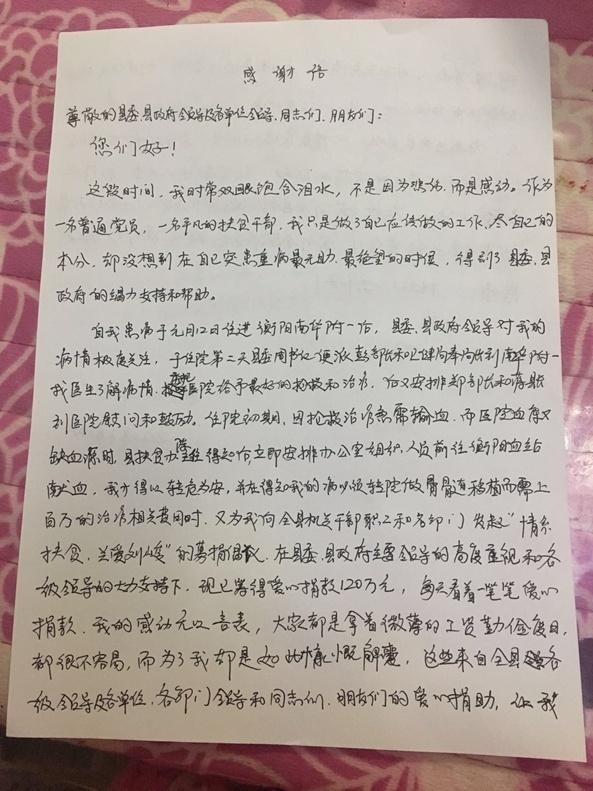 感谢信
尊敬的县委、县政府领导及各单位领导、同志们、朋友们：
您们好！
这段时间，我时常双眼饱含泪水，不是因为悲伤，而是感动。作为
一名普通党员，一名平凡的扶贫干部，我只是做了自己应该做的工作，尽自己的
本分，却没想到在自己突患重病最无助、最绝望的时候，得到了县委、县
政府的竭力支持和帮助。
自我患病于元月12日住进衡阳南华附一后，县委、县政府领导对我的
病情极度关注，于住院第二天县委周书记便派彭部长和卫健局李局长到南华附一
找医生了解病情，医院给予最好的抢救和治疗，后又安排郑部长和
到医院慰问和鼓励。住院初期，因抢救治疗急需输血，而医院血库又
缺血源时，县扶贫办得知后立即安排办公室组织人员前往衡阳血站
献血，我才得以转危为安，并在得知我的病必须转院做骨髓移植而需上
百万的治疗相关费用时，又为我向全县机关干部职工和各部门发起“情系
扶贫，关爱刘峻”的募捐倡议，在县委、县政府主要领导的高度重视和各
级领导的大力支持下，现已筹得爱心捐款120万元，每天看着一笔笔爱心
捐款，我的感动无以言表，大家都是拿着微薄的工资勤俭度日，
都很不容易，而为了我却是如此慷慨解囊，这些来自全县各
级领导及各单位、各部门领导和同志们、朋友们的爱心捐助，让我